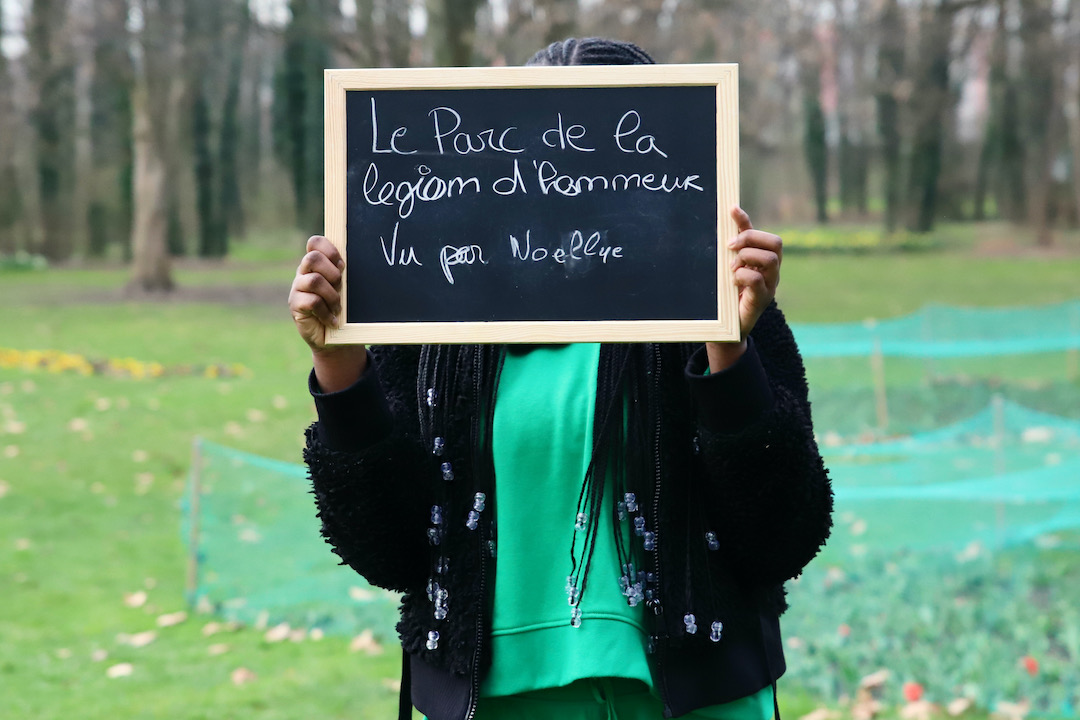 Le Parc de la
legiom d'hommeur
Vu par Noellye